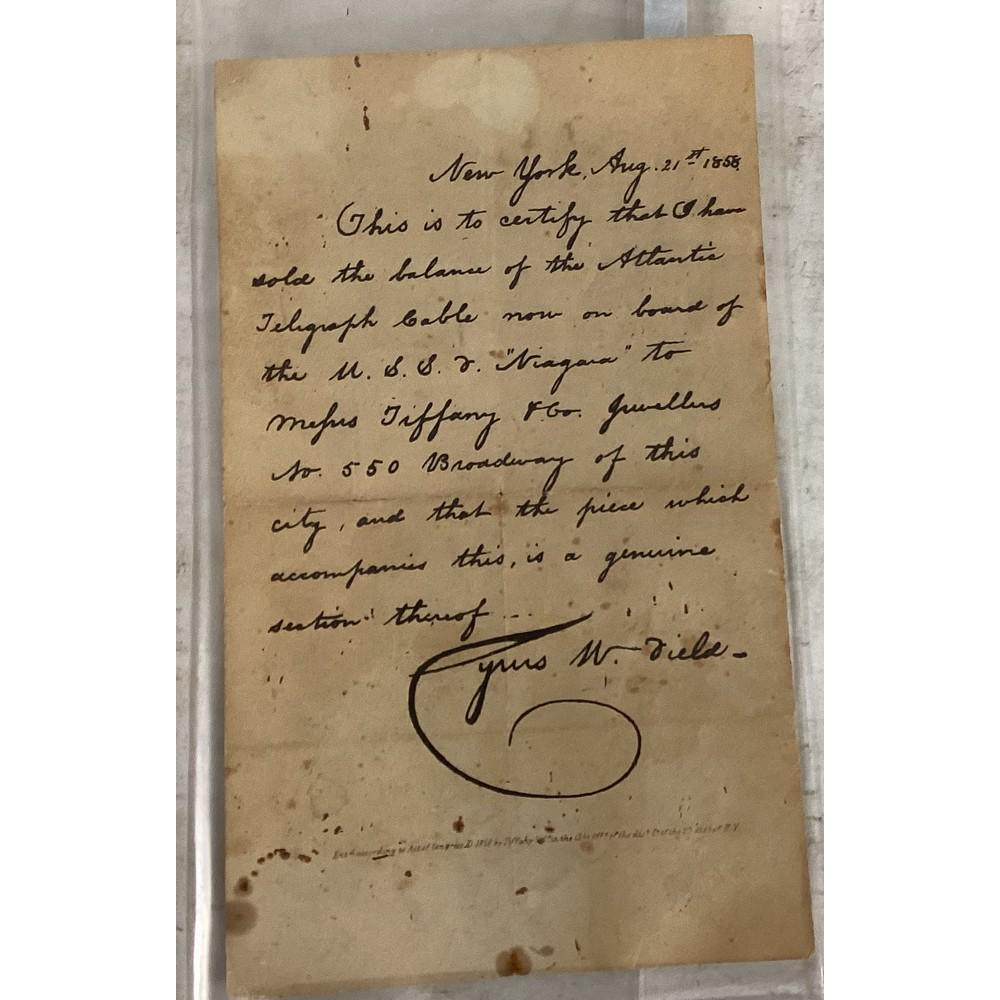 New York, Aug. 21st 1858.
This is to certify that I have
sold the balance of the Atlantic
Telegraph Cable now on board of
the U. S. S. F. "Niagara" to
Messrs Tiffany & Co. Jewellers
No. 550 Broadway of this
city, and that the piece which
accompanies this, is a genuine
section thereof
Cyrus W. Field
according to Act of Congress 1858 by Tiffany in the of the of the of N.Y.